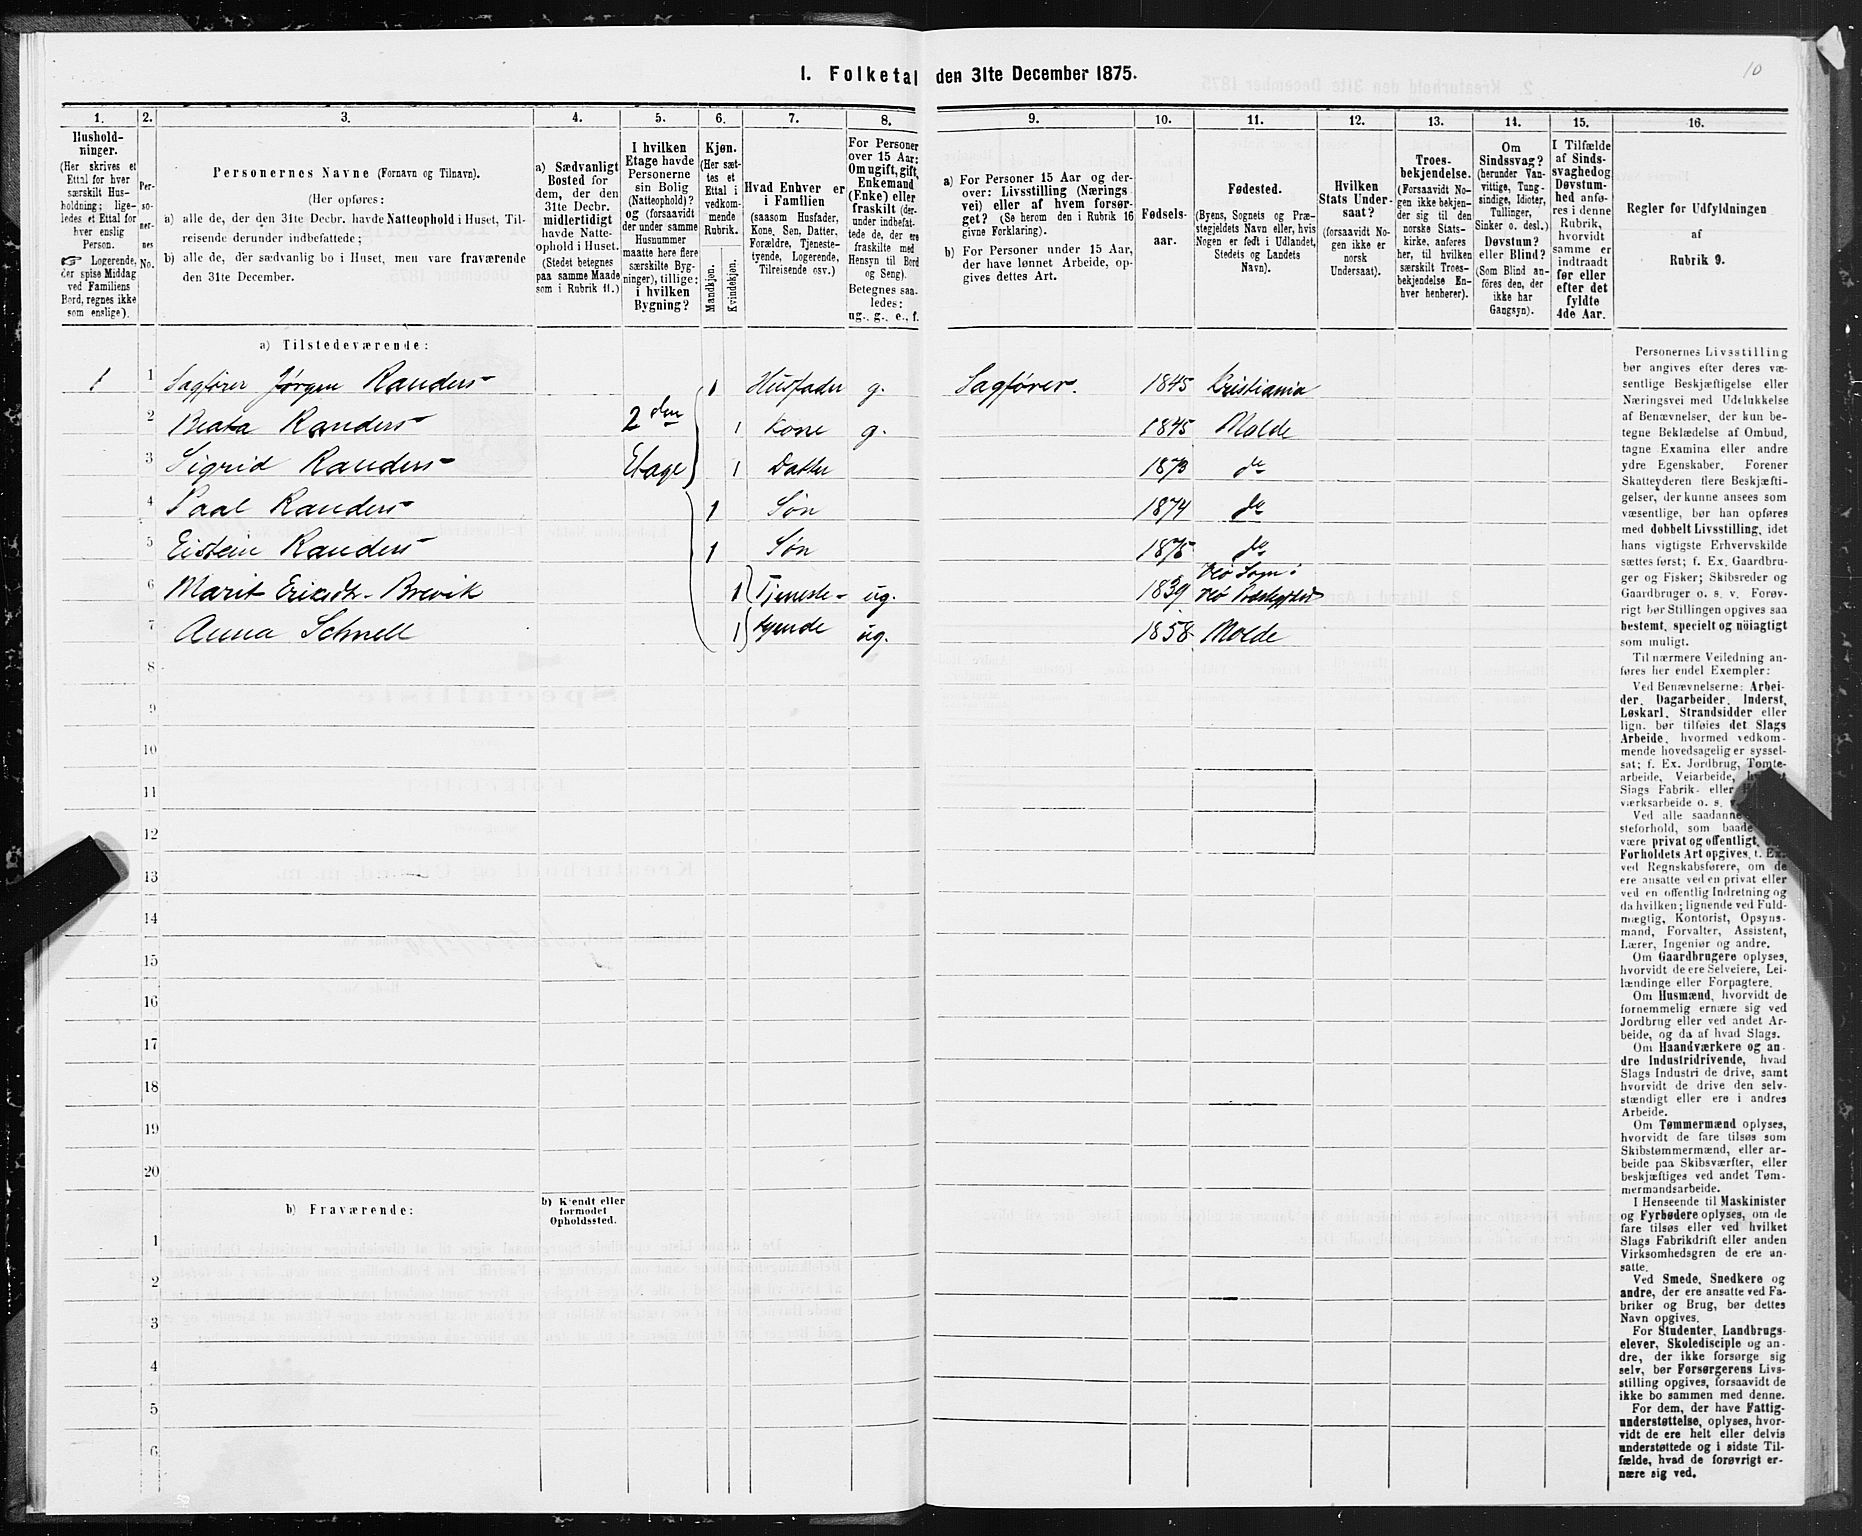 10
I. Folketal den 31te December 1875.
1.
2.
3.
4.
5.
6.
7.
8.
9.
10.
11.
12.
13.
14.
15.
16.
Hushold-
ninger.
(Her skrives et
Ettal for hver
særskilt Hus-
holdning; lige-
ledes et Ettal for
hver enslig
Person.
☞ Logerende,
der spise Middag
ved Familiens
Bord, regnes ikke
som enslige).
Per-
so-
ner-
nes
No.
Personernes Navne (Fornavn og Tilnavn).
(Her opføres:
a) alle de, der den 31te Decbr. havde Natteophold i Huset, Til-
reisende derunder indbefattede;
b) alle de, der sædvanlig bo i Huset, men vare fraværende
den 31te December.
a) Sædvanligt
Bosted for
dem, der den
31te Decbr.
midlertidigt
havde Natte-
ophold i Huset.
(Stedet betegnes
paa samme Maade
som i Rubrik 11.)
I hvilken
Etage havde
Personerne
sin Bolig
(Natteophold)?
og (forsaavidt
der under samme
Husnummer
maatte høre flere
særskilte Byg-
ninger), tillige:
i hvilken
Bygning?
Kjøn.
(Her sæt-
tes et
Ettal i
vedkom-
mende
Rubrik.
Mandkjøn.
Kvindekjøn.
Hvad Enhver er
i Familien
(saasom Husfader,
Kone, Søn, Datter,
Forældre, Tjeneste-
tyende, Logerende,
Tilreisende osv.)
For Personer
over 15 Aar:
Om ugift, gift,
Enkemand
(Enke) eller
fraskilt (der-
under indbefat-
tede de, der ere
fraskilte med
Hensyn til Bord
og Seng).
Betegnes saa-
ledes:
ug., g., e., f.
a) For Personer 15 Aar og der-
over: Livsstilling (Nærings
vei) eller af hvem forsør-
get? (Se herom den i Rubrik 16
givne Forklaring).
b) For Personer under 15 Aar,
der have lønnet Arbeide, op-
gives dettes Art.
Fødsels-
aar.
Fødested.
(Byens, Sognets og Præ-
stegjeldets Navn eller, hvis
Nogen er født i Udlandet,
Stedets og Landets
Navn).
Hvilken
Stats Under-
saat?
(forsaavidt No-
gen ikke er
norsk
Undersaat).
Troes-
bekjendelse.
(Forsaavidt No-
gen ikke bekjen-
der sig til den
norske Stats-
kirke, anføres
her, til hvilken
særskilt Troes-
bekjendelse En-
hver henhører).
Om
Sindssvag?
(herunder Van-
vittige, Tung-
sindige, Idioter,
Tullinger,
Sinker o. desl.)
Døvstum?
eller Blind?
(Som Blind an-
føres den, der
ikke har
Gangsyn).
I Tilfælde
af Sinds-
svaghed og
Døvstum-
hed anfø-
res i denne
Rubrik,
hvorvidt
samme er
indtraadt
før eller
efter det
fyldte
4de Aar.
Regler for Udfyldningen
af
Rubrik 9.
a) Tilstedeværende:
1 1 Sagfører Jørgen Randers 1 Husfader g. Sagfører. 1845 Kristiania
2 Beata Randers 2den 1 Kone g. 1845 Molde
3 Sigrid Randers Etage 1 Datter 1873 do
4 Paal Randers 1 Søn 1874 do
5 Eistein Randers 1 Søn 1875 do
6 Marit Ericdtr. Brevik 1 Tjeneste- ug. 1839 VEø Sogn i
Vø Præstegjeld
7 Anna Schnell 1 tyende ug. 1858 Molde
8
9
10
11
12
13
14
15
16
17
18
19
20
b) Fraværende:
b) Kjendt eller
formodet
Opholdssted.
1
2
3
4
5
6
Personernes Livsstilling
bør angives efter deres væ-
sentlige Beskjæftigelse eller
Næringsvei med Udelukkelse
af Benævnelser, der kun be-
tegne Beklædelse af Ombud,
tagne Examina eller andre
ydre Egenskaber. Forener
Skatteyderen flere Beskjæfti-
gelser, der kunne ansees som
væsentlige, bør han opføres
med dobbelt Livsstilling, idet
hans vigtigste Erhvervskilde
sættes først; f. Ex. Gaardbru-
ger og Fisker; Skibsreder og
Gaardbruger o. s. v. Forøv-
rigt bør Stillingen opgives saa
bestemt, specielt og nöiagtigt
som muligt.
Til nærmere Veiledning an-
føres her endel Exempler:
Ved Benævnelserne: Arbei-
der, Dagarbeider, Inderst,
Løskarl, Strandsidder eller
lign. bør tilføies det Slags
Arbeide, hvormed vedkom-
mende hovedsagelig er syssel-
sat; f. Ex. Jordbrug, Tomte-
arbeide, Veiarbeide,
Slags Fabrik- eller
værksarbeide o. s.
Ved alle saadanne
steforhold, som baade
være privat og offentligt,
Forholdets Art opgives, f. Ex.
ved Regnskabsførere, om de
ere ansatte ved en privat eller
ved en offentlig Indretning og
da hvilken; lignende ved Fuld-
mægtig, Kontorist, Opsyns-
mand, Forvalter, Assistent,
Lærer, Ingeniør og andre.
Om Gaardbrugere oplyses,
hvorvidt de ere Selveiere, Lei-
lændinge eller Forpagtere.
Om Husmænd, hvorvidt de
fornemmelig ernære sig ved
Jordbrug eller ved andet Ar-
beide, og da af hvad Slags.
Om Haandværkere og an-
dre Industridrivende, hvad
Slags Industri de drive, samt
hvorvidt de drive den selv-
stændigt eller ere i andres
Arbeide.
Om Tømmermænd oplyses,
hvorvidt de fare tilsøs som
Skibstømmermænd, eller ar-
beide paa Skibsværfter, eller
beskjæftiges ved andet Tøm-
mermandsarbeide.
I Henseende til Maskinister
og Fyrbødere oplyses, om de
fare tilsøs eller ved hvilket
Slags Fabrikdrift eller anden
Virksomhedsgren de ere an-
satte.
Ved Smede, Snedkere og
andre, der ere ansatte ved Fa-
briker og Brug, bør dettes
Navn opgives.
For Studenter, Landbrugs-
elever, Skoledisciple og an-
dre, der ikke forsørge sig
selv, bør Forsørgerens Livs-
stilling opgives, forsaavidt de
ikke bo sammen med denne.
For dem, der have Fattig-
understøttelse, oplyses, hvor-
vidt de ere helt eller delvis
understøttede og i sidste Til-
fælde, hvad de forøvrigt er-
nære sig ved.